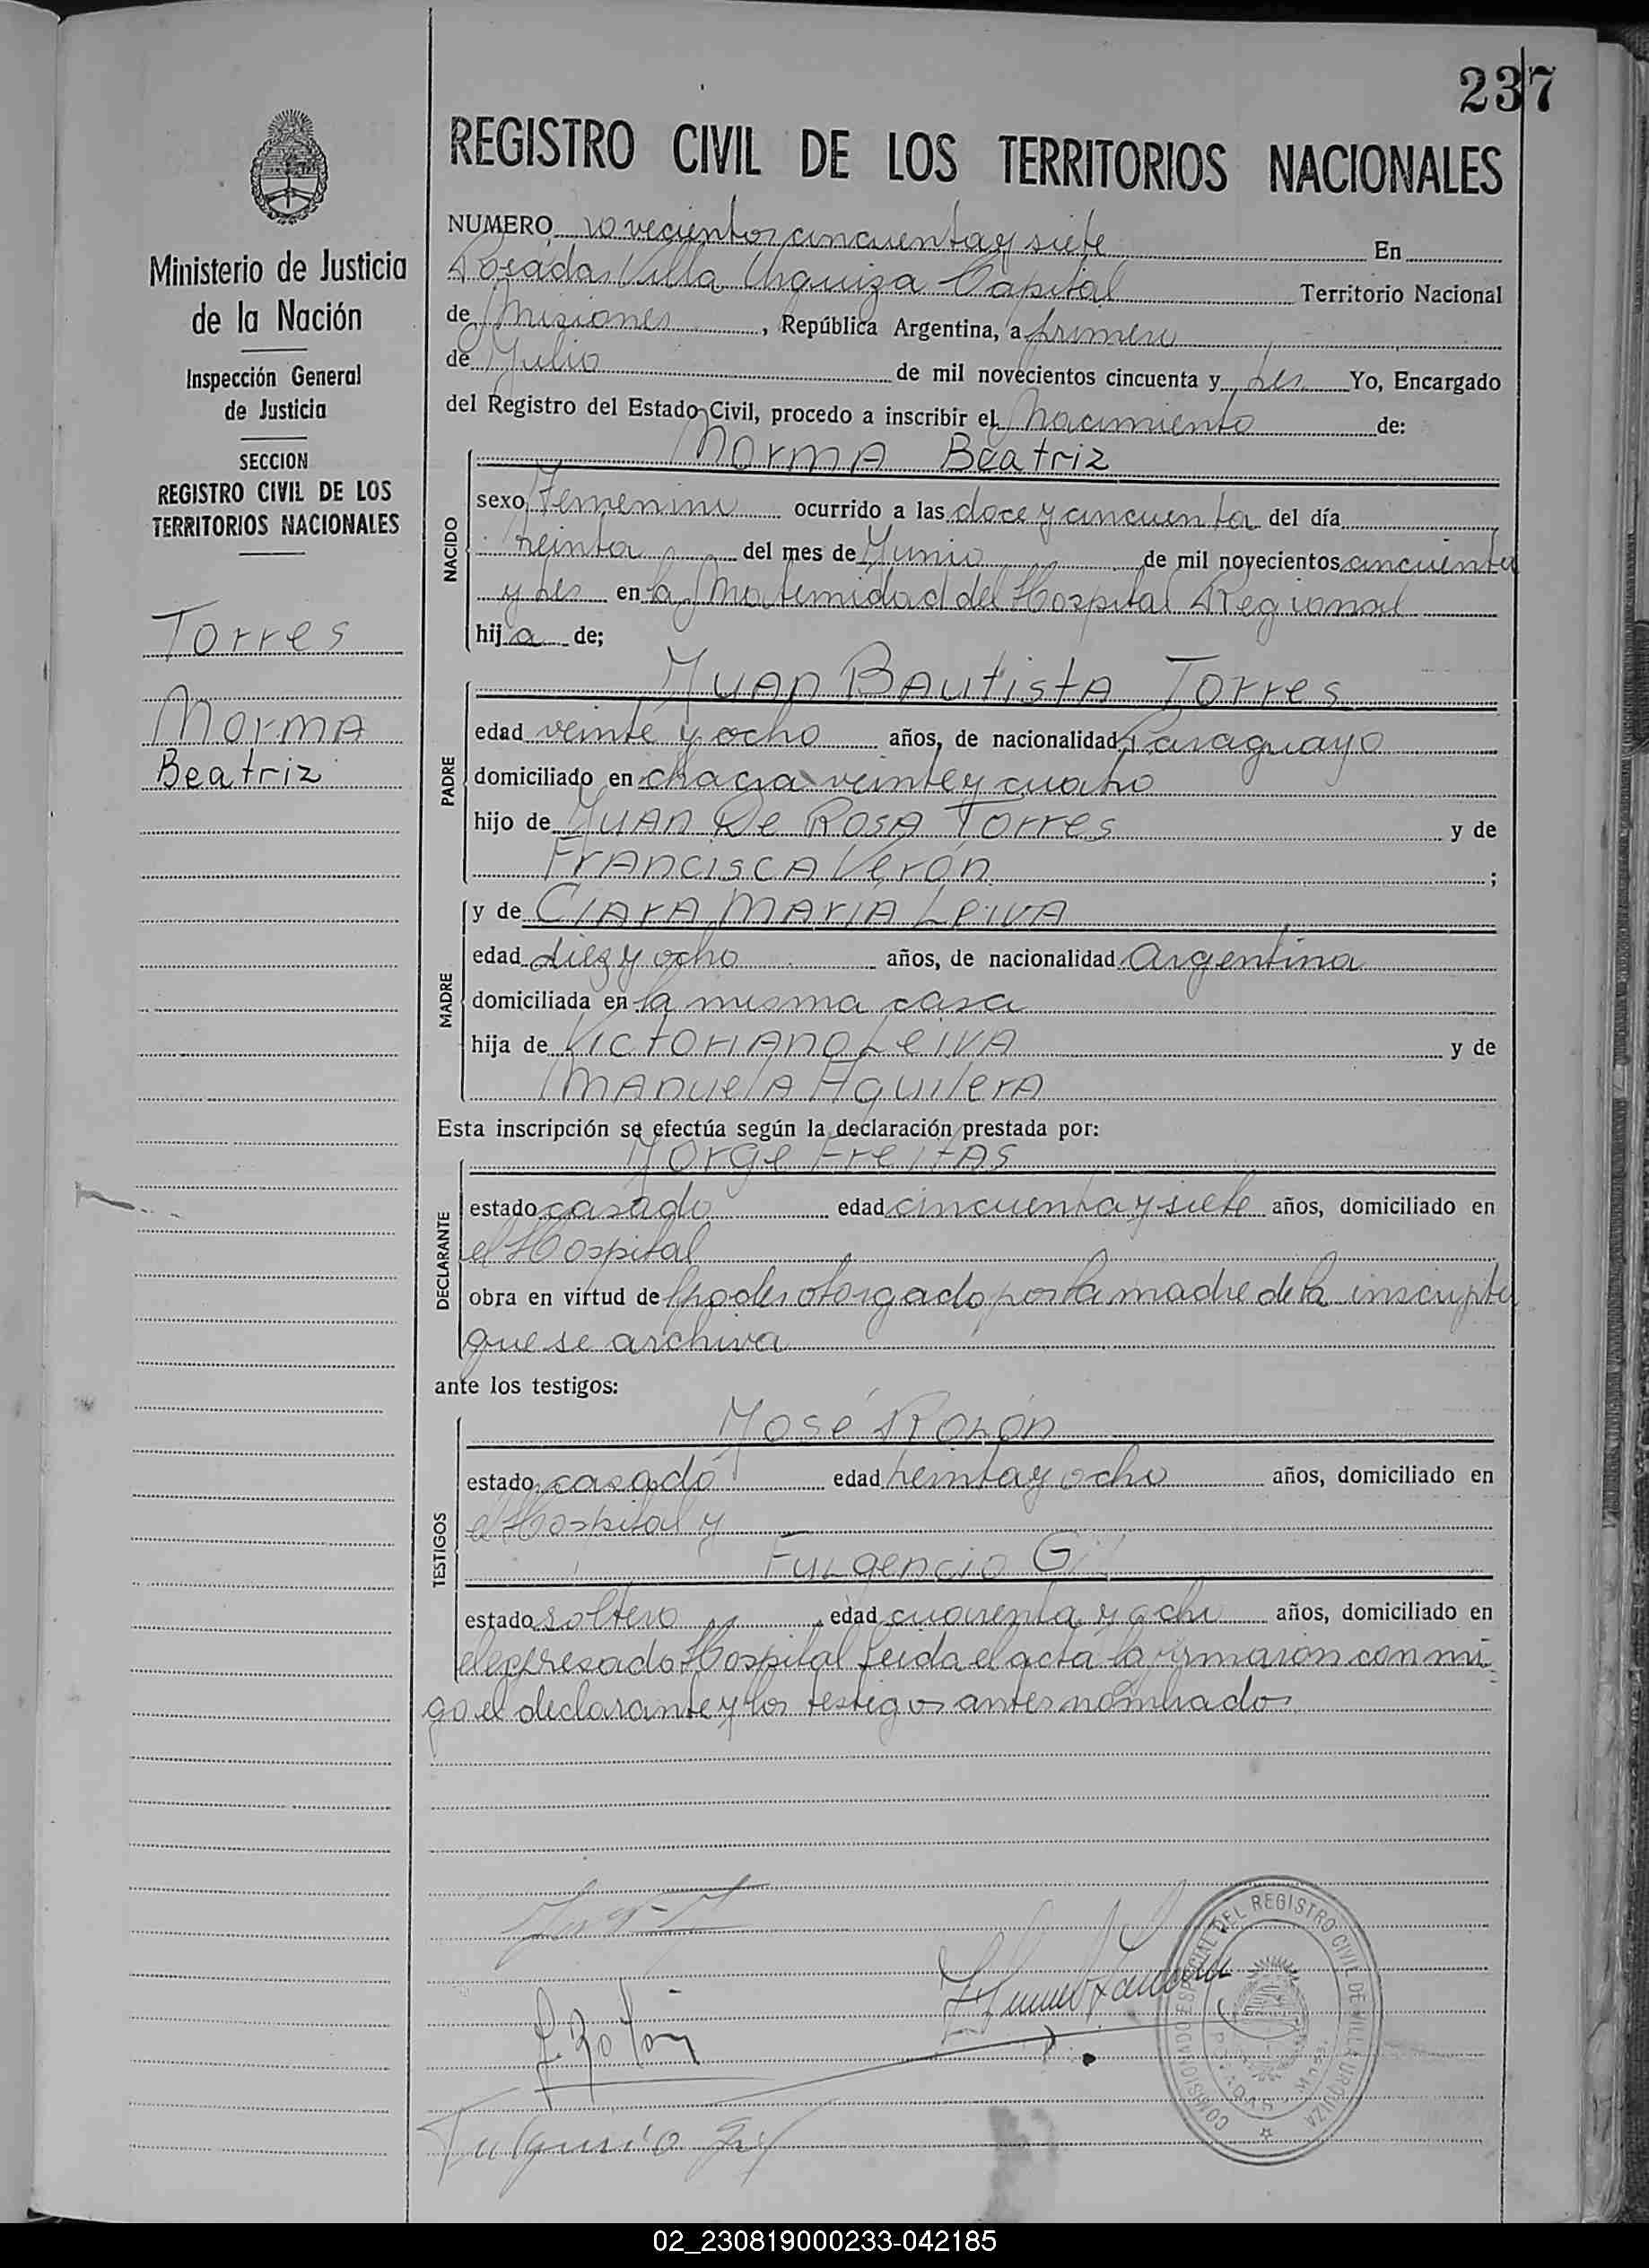 237
REGISTRO CIVIL DE LOS TERRITORIOS NACIONALES
Ministerio de Justicia
de la Nación
Inspección General
de Justicia
SECCION
REGISTRO CIVIL DE LOS
TERRITORIOS NACIONALES
Torres
Norma
Beatriz
NUMERO novecientos cincuenta y siete En
Posadas Villa Urquiza Capital Territorio Nacional
de Misiones, República Argentina, a primero
de Julio de mil novecientos cincuenta y tres Yo, Encargado
del Registro del Estado Civil, procedo a inscribir el Nacimiento de:
Norma Beatriz
NACIDO
sexo Femenino ocurrido a las doce y cincuenta del día
treinta del mes de Junio de mil novecientos cincuenta
y tres en la Maternidad del Hospital Regional
hija de;
Juan Bautista Torres
PADRE
edad veinte y ocho años, de nacionalidad Paraguayo
domiciliado en chacra veinte y cuatro
hijo de Juan De Rosa Torres y de
Francisca Verón ;
MADRE
y de Clara Maria Leiva
edad diez y ocho años, de nacionalidad Argentina
domiciliada en la misma casa
hija de Victoriano Leiva y de
Manuela Aguilera
Esta inscripción se efectúa según la declaración prestada por:
Jorge Freitas
DECLARANTE
estado casado edad cincuenta y siete años, domiciliado en
el Hospital
obra en virtud de poder otorgado por la madre de la inscripta
que se archiva
ante los testigos:
José Rolón
TESTIGOS
estado casado edad treinta y ocho años, domiciliado en
el Hospital y
Fulgencio Gil
estado soltero edad cuarenta y ocho años, domiciliado en
el expresado Hospital Leida el acta la firmaron conmi
go el declarante y los testigos antes nombrados
COMISIONADO ESPECIAL DEL REGISTRO CIVIL DE VILLA URQUIZA
POSADAS
Fulgencio Gil
02_230819000233-042185